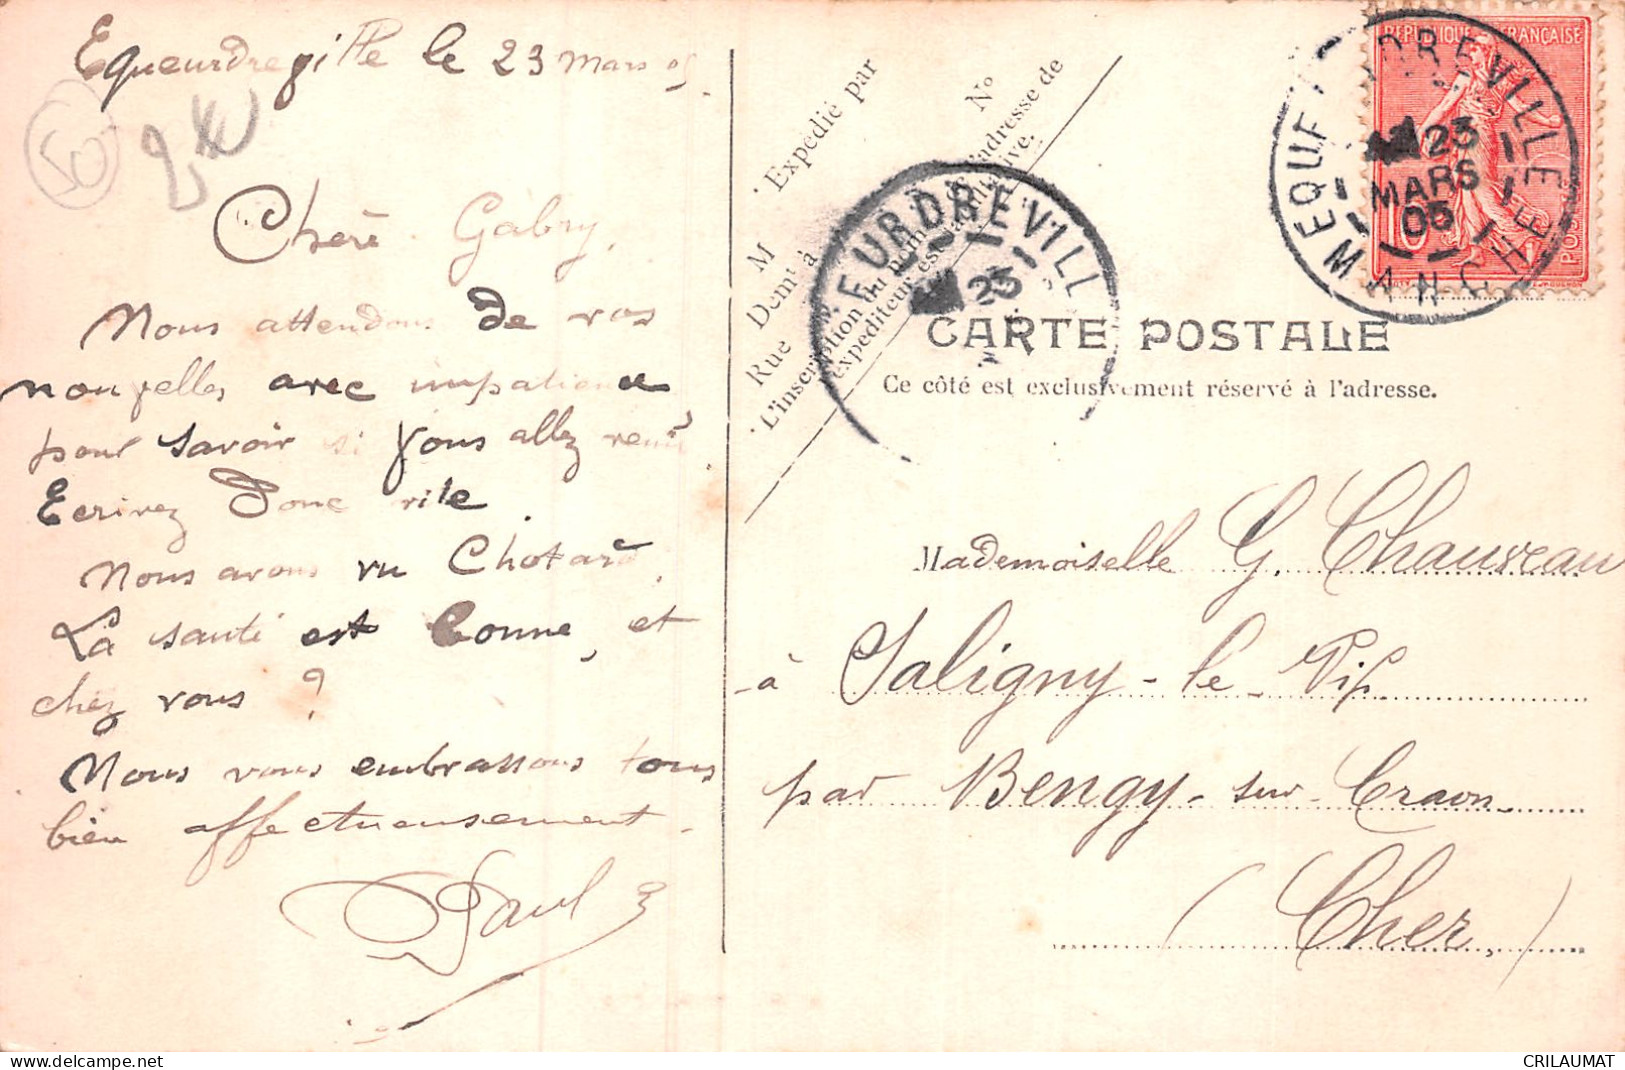 Equeurdreville le 23 Mars 05.
50
2€
Chère Gabry,
Nous attendons de vos
nouvelles avec impatience
pour savoir si vous allez venir
Ecrivez donc vite.
Nous avons vu Chotard.
La santé est bonne, et
chez vous ?
Nous vous embrassons tous
bien affectueusement.
Paul
Expedié par
M
Rue
Demt à
No
L'inscription du nom & de l'adresse de
l'expéditeur est facultative.
EURDREVILL
23
CARTE POSTALE
Ce côté est exclusivement réservé à l'adresse.
REPUBLIQUE FRANÇAISE
10
POSTES
EQUEURDREVILLE
MANCHE
23
MARS
05
Mademoiselle G. Chauveau
à Saligny-le-Vif
par Bengy-sur-Craon
(Cher)
CRILAUMAT